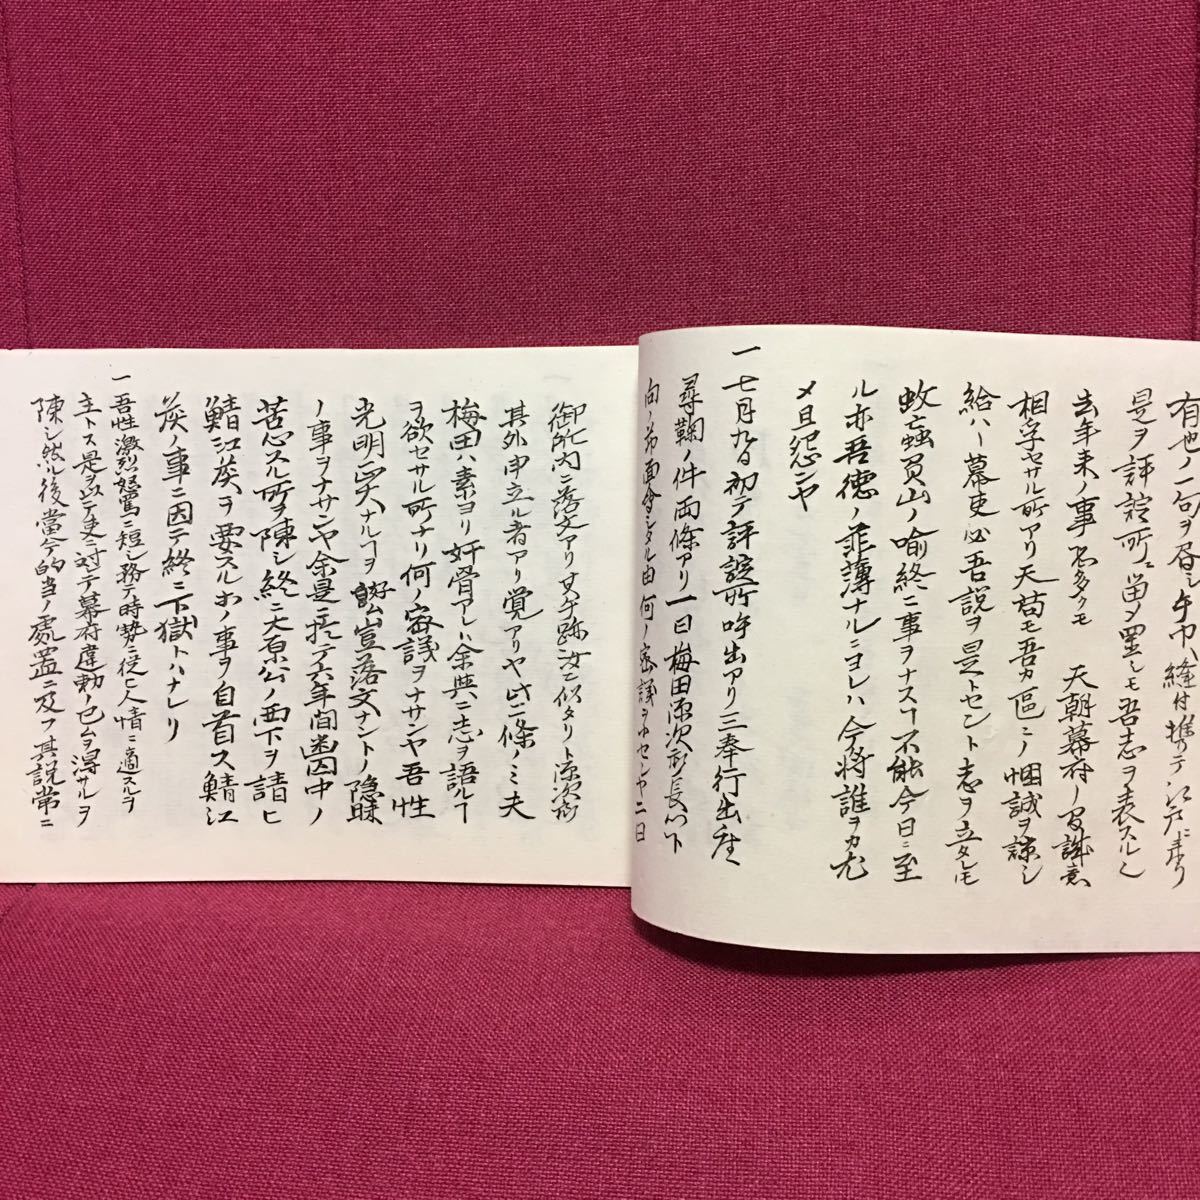 有也ノ一句ヲ書シ手巾ヘ縫付携テ江戸ニ来リ
是ヲ評定所ニ留メ置シモ吾志ヲ表スル也
去年来ノ事恐多クモ　天朝幕府ノ間誠意
相孚セサル所アリ天苟モ吾カ區々ノ悃誠ヲ諒シ
給ハヽ幕吏必吾説ヲ是トセント志ヲ立タレモ
蚊蝱負山ノ喩終ニ事ヲナスヿ不能今日ニ至
ル亦吾徳ノ菲薄ナルニヨレハ今将誰ヲカ尤
メ且怨ンヤ
一七月九日初テ評定所呼出アリ三奉行出座
尋鞠ノ件両條アリ一曰梅田源次郎長門下
向ノ節面會シタル由何ノ密議ヲナセシヤ二曰
御所内ニ落文アリ其手跡汝ニ似タリト源次郎
其外申立ル者アリ覚アリヤ此二條ノミ夫
梅田ハ素ヨリ奸骨アレハ余與ニ志ヲ語ルヿ
ヲ欲セサル所ナリ何ノ密議ヲナサンヤ吾性
光明正大ナルヿヲ好ム豈落文ナントノ隠昧
ノ事ヲナサンヤ余是ニ於テ六年間幽囚中ノ
苦心スル所ヲ陳シ終ニ大原公ノ西下ヲ請ヒ
鯖江侯ヲ要スル等ノ事ヲ自首ス鯖江
侯ノ事ニ因テ終ニ下獄トハナレリ
一吾性激烈怒罵ニ短シ務テ時勢ニ従ヒ人情ニ適スルヲ
主トス是ヲ以テ吏ニ対テ幕府違勅ノ已ムヲ得サルヲ
陳シ然ル後當今的当ノ處置ニ及フ其説常ニ